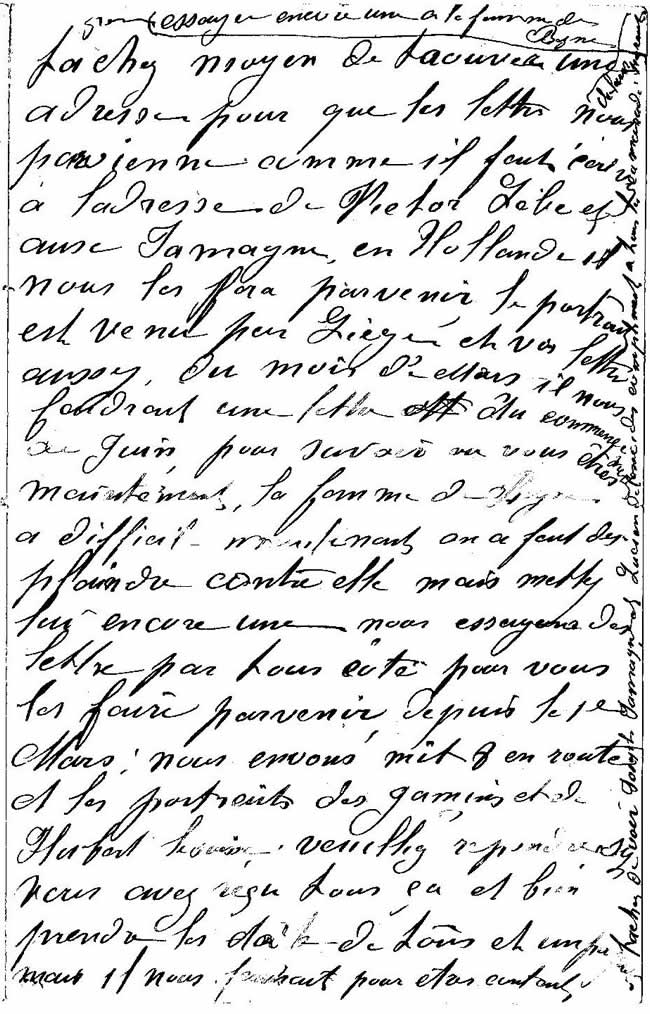 essayer encore une a la femme de
Beyne
tachez moyen de traouver une
adresse pour que les lettre nous
parvienne comme il faut écrire
à l'adresse de Victor
aux Jamagne, en Hollande il
nous les fera parvenir, le portrait
est venu par Liège et vos lettre
aussy, du mois de Mars il nous
faudrait une lettre du commence
de Juin pour savoir ou vous êtes
maintenant, la femme de
a difficil maintenant on a fait des
plaindre contre elle mais mettez
lui encore une nous essayons des
lettre par tous côté pour vous
les faire parvenir depuis le 1er
Mars, nous envons mit 8 en route
et les portraits des gamins et de
Hubert veuillez repondre si
vous avez reçu tous ça et bien
prendre les de tous et un peu
mais il nous faudrait pour etres contents,
tachez de voir Joseph Jamagne et Lucien des compliment a tous